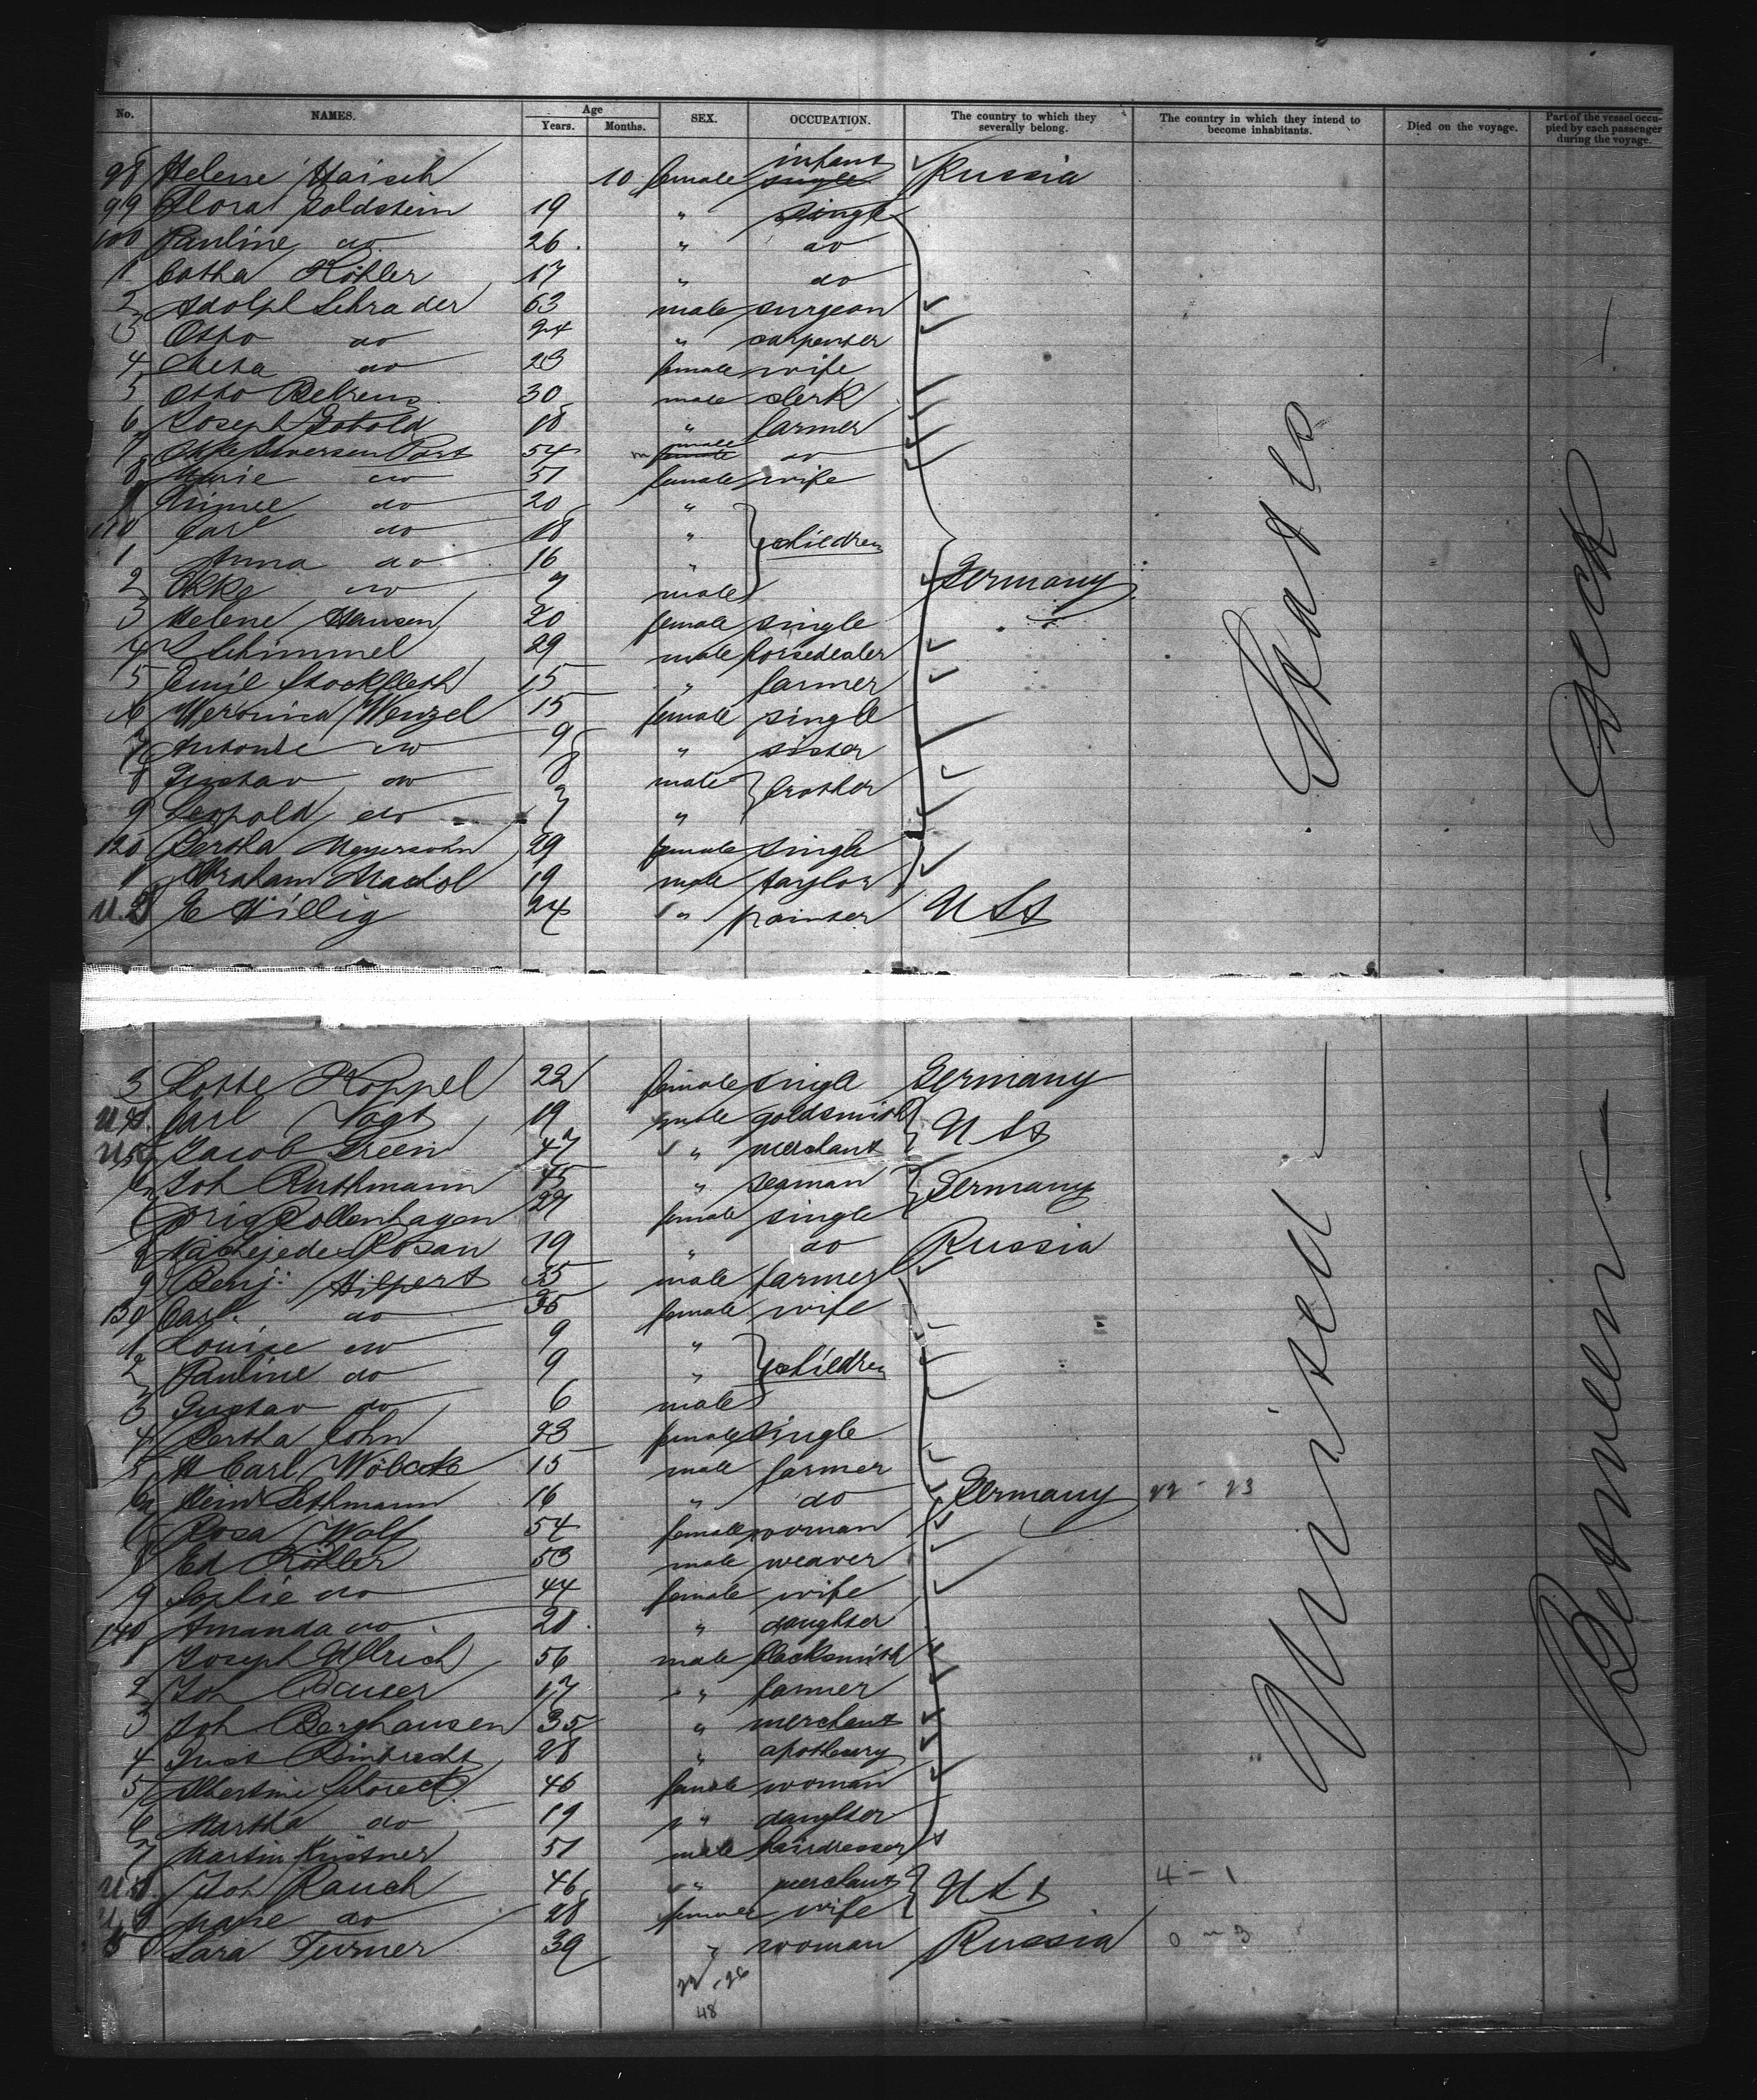 No. NAMES. Age Years. Months. SEX. OCCUPATION. The country to which they severally belong. The country in which they intend to become inhabitants. Died on the voyage. Part of the vessel occupied by each passenger during the voyage.
98 Helene Haisch 10 female infant Russia
99 Flora Goldstein 19 " single
100 Pauline do 26 " do
1 Köhler 17 " do
2 Adolph Schrader 63 male surgeon
3 Otto do 24 " carpenter
4 Meta do 23 female wife
5 Otto Behrens 30 male clerk
6 Joseph 18 " farmer
7 54 male do
8 Marie do 51 female wife
9 do 20 "
110 Carl do 18 " children
1 Anna do 16 "
2 Okke do 7 male Germany
3 Helene Hansen 20 female single
4 Schimmel 29 male horsedealer
5 Emil Stockfleth 15 " farmer
6 Weronica Wenzel 15 female single
7 do 9 " sister
8 Gustav do 8 male brother
9 Leopold do 7 "
120 Bertha Meyersohn 29 female single
1 Abraham 19 male taylor
U.2 E Hillig 24 " painter U St
3 Lotte Koppel 22 female single Germany
U 4. Carl Vogt 19 male goldsmith U St
U 5 Jacob Green 47 " merchant
6 Joh Ruthmann 45 " seaman Germany
7 Rollenhagen 29 female single
8 Rosan 19 " do Russia
9 Benj: Hilpert 35 male farmer
130 Carl. do 36 female wife
1 Louise do 9 "
2 Pauline do 9 " children
3 Gustav do 6 male
4 Bertha Cohn 23 female single
5 H Carl Wöbcke 15 male farmer
6 Hein Lethmann 16 " do Germany 22 - 23
7 Rosa Wolf 54 female woman
8 Ed Köhler 53 male weaver
9 Sophie do 44 female wife
140 Amanda do 20 " daughter
1 Joseph Ullrich 56 male blacksmith
2 Joh Bauer 17 " farmer
3 Joh Berghausen 35 " merchant
4 28 " apothecary
5 Albertine 46 female woman
6 Martha do 19 " daughter
7 Martin Küstner 51 male hairdresser
U 8. Joh Rauch 46 " merchant U St 4 - 1
U 9 Marie do 28 female wife
150 Sara Turner 39 " woman Russia 0 - 3
22 - 26
48
United States
Between Deck